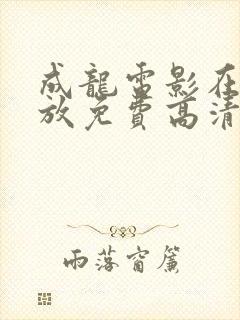 成龍電影在
放免費高清
雨落窗簾